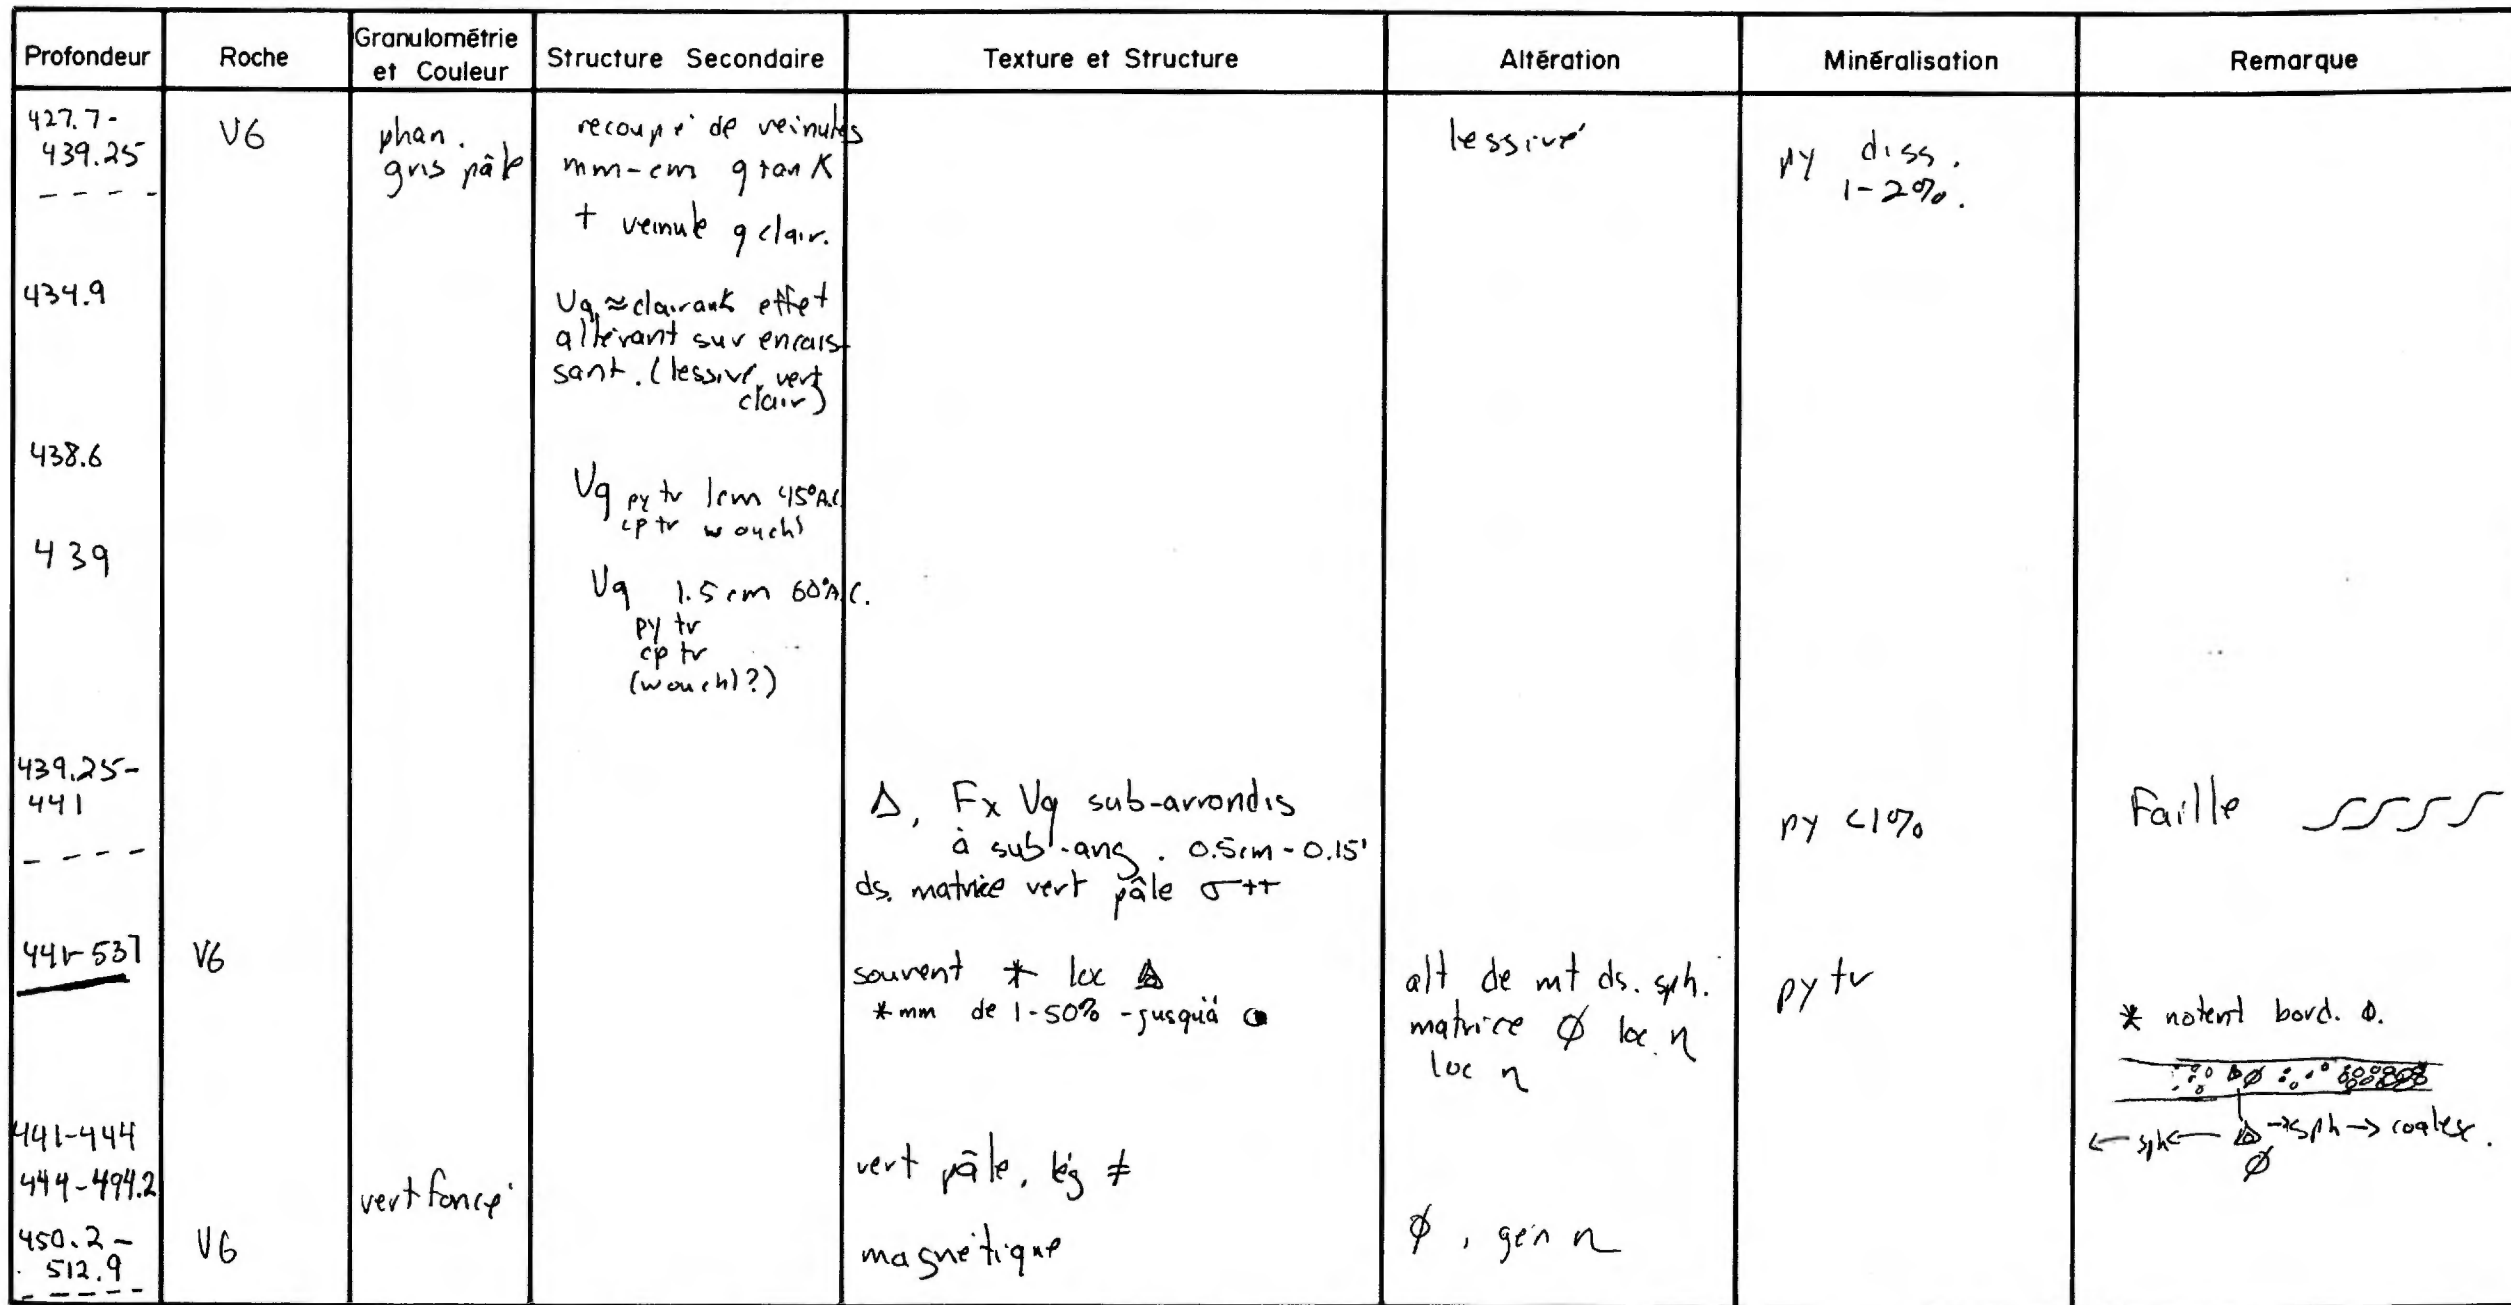 Profondeur Roche Granulométrie et Couleur Structure Secondaire Texture et Structure Altération Minéralisation Remarque
427.7-
439.25
V6
phan.
gris pâle
recoupé de veinules
mm-cm q tan K
+ veinule q clair.
lessivé
py diss.
1-2%.
434.9
Vq ≈ clair effet
altérant sur encais
sant. (lessivé, vert
clair)
438.6
Vq py tr 1cm 45° A.C.
cp tr
439
Vq 1.5 cm 60° A.C.
py tr
cp tr
439.25-
441
Δ, Fx Vq sub-arrondis
à sub-ang. 0.5cm-0.15'
ds. matrice vert pâle σ++
py <1%
Faille
441-537
V6
souvent * loc
*mm de 1-50% - jusqu'à
alt de mt ds. sph.
matrice ø loc. n
loc n
py tr
* bord.
← sph ← → sph → coalesc.
ø
441-444
vert pâle, lég ≠
444-494.2
vert foncé
450.2-
512.9
V6
magnétique
ø, gén n